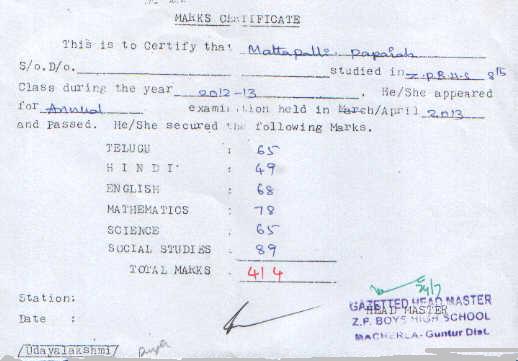 MARKS CERTIFICATE
This is to Certify that Mattapalli. Papaiah
S/o.D/o. studied in Z.P.B.H.S 8th
Class during the year 2012-13 . He/She appeared
for Annual examination held in March/April 2013
and Passed. He/She secured the following Marks.
TELUGU : 65
HINDI : 49
ENGLISH : 68
MATHEMATICS : 78
SCIENCE : 65
SOCIAL STUDIES . 89
TOTAL MARKS . 414
24/7
Station: GAZETTED HEAD MASTER
HEAD MASTER
Date : Z.P. BOYS HIGH SCHOOL
MACHERLA - Guntur Dist.
/Udayalakshmi/